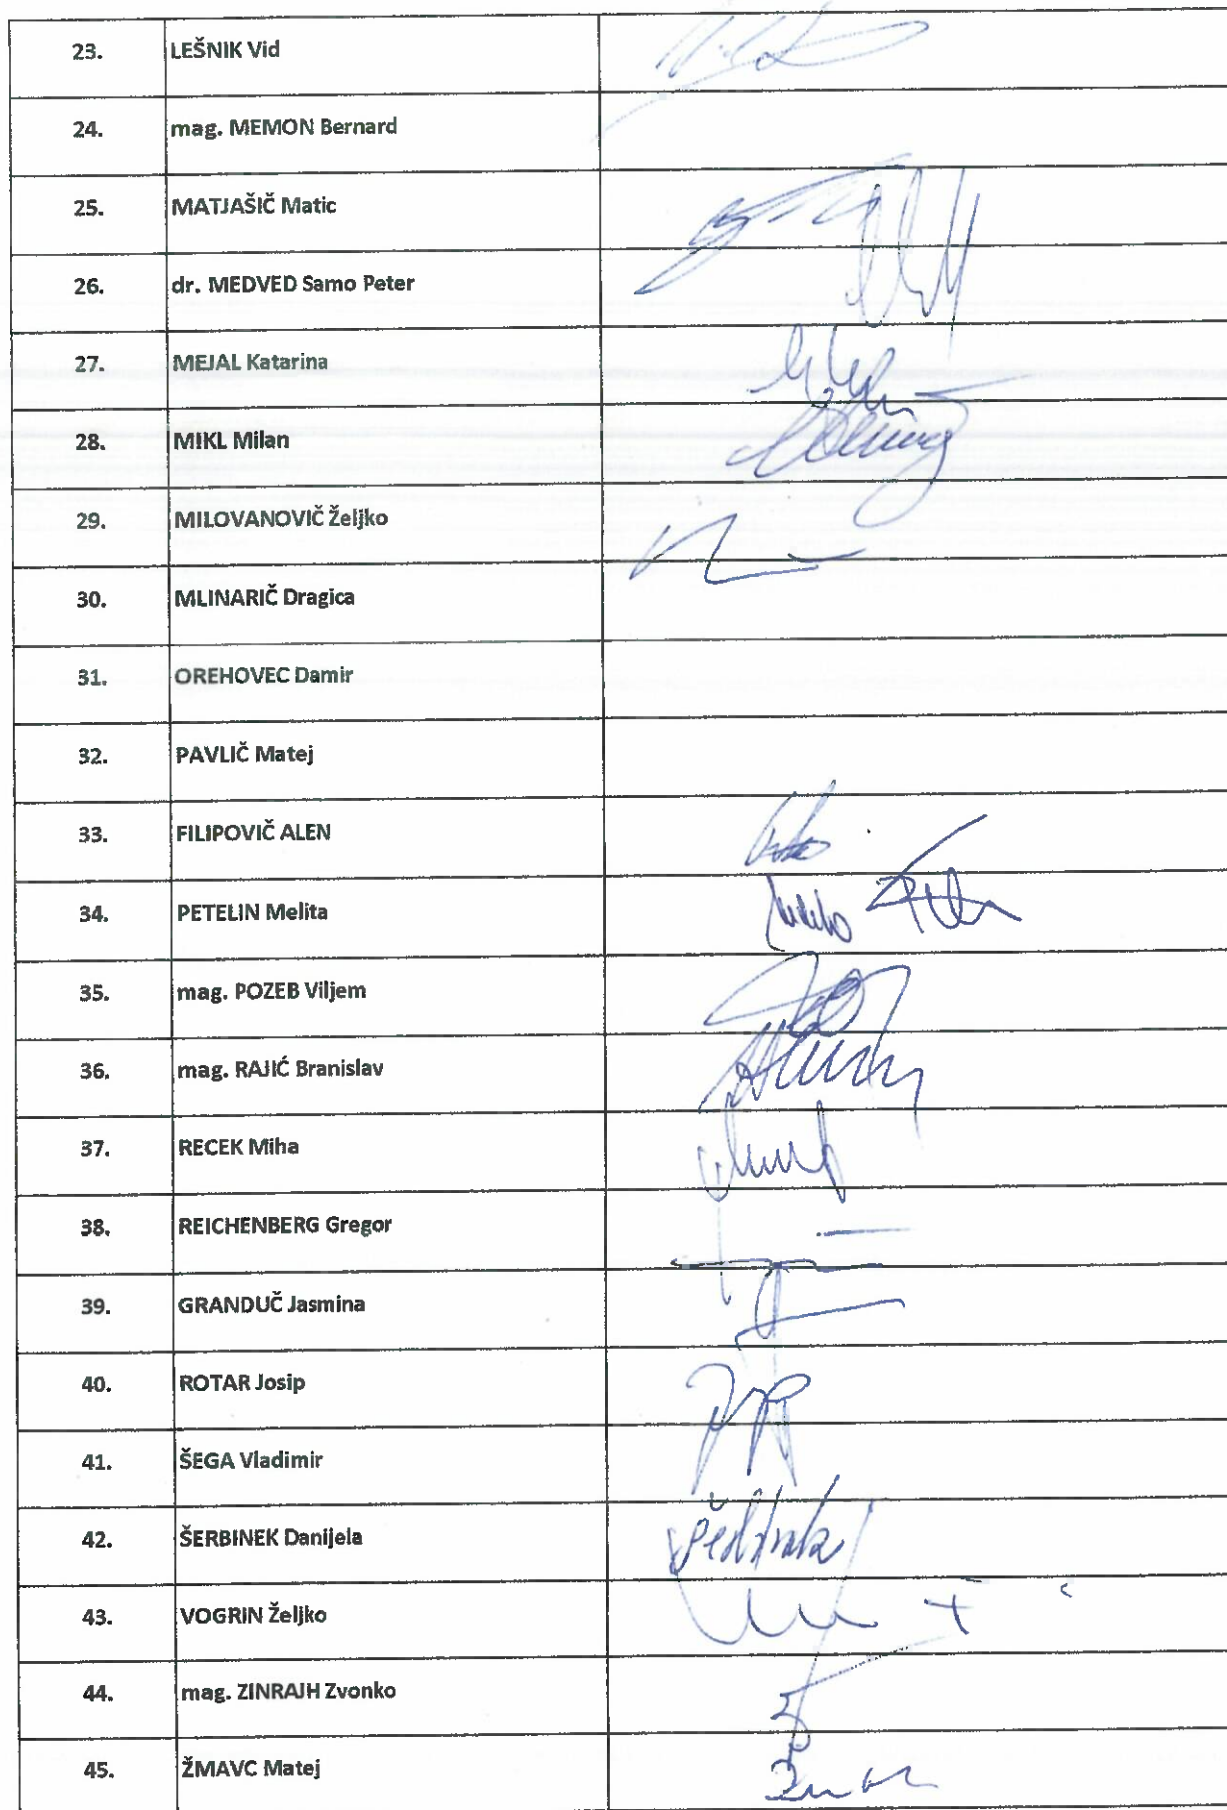 23. LEŠNIK Vid
24. mag. MEMON Bernard
25. MATJAŠIČ Matic
26. dr. MEDVED Samo Peter
27. MEJAL Katarina
28. MIKL Milan
29. MILOVANOVIČ Željko
30. MLINARIČ Dragica
31. OREHOVEC Damir
32. PAVLIČ Matej
33. FILIPOVIČ ALEN
34. PETELIN Melita
35. mag. POZEB Viljem
36. mag. RAJIĆ Branislav
37. RECEK Miha
38. REICHENBERG Gregor
39. GRANDUČ Jasmina
40. ROTAR Josip
41. ŠEGA Vladimir
42. ŠERBINEK Danijela
43. VOGRIN Željko
44. mag. ZINRAJH Zvonko
45. ŽMAVC Matej